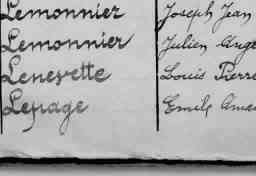 Lemonnier Joseph Jean
Lemonnier Julien Ange
Lenevette Louis Pierre
Lepage Emile